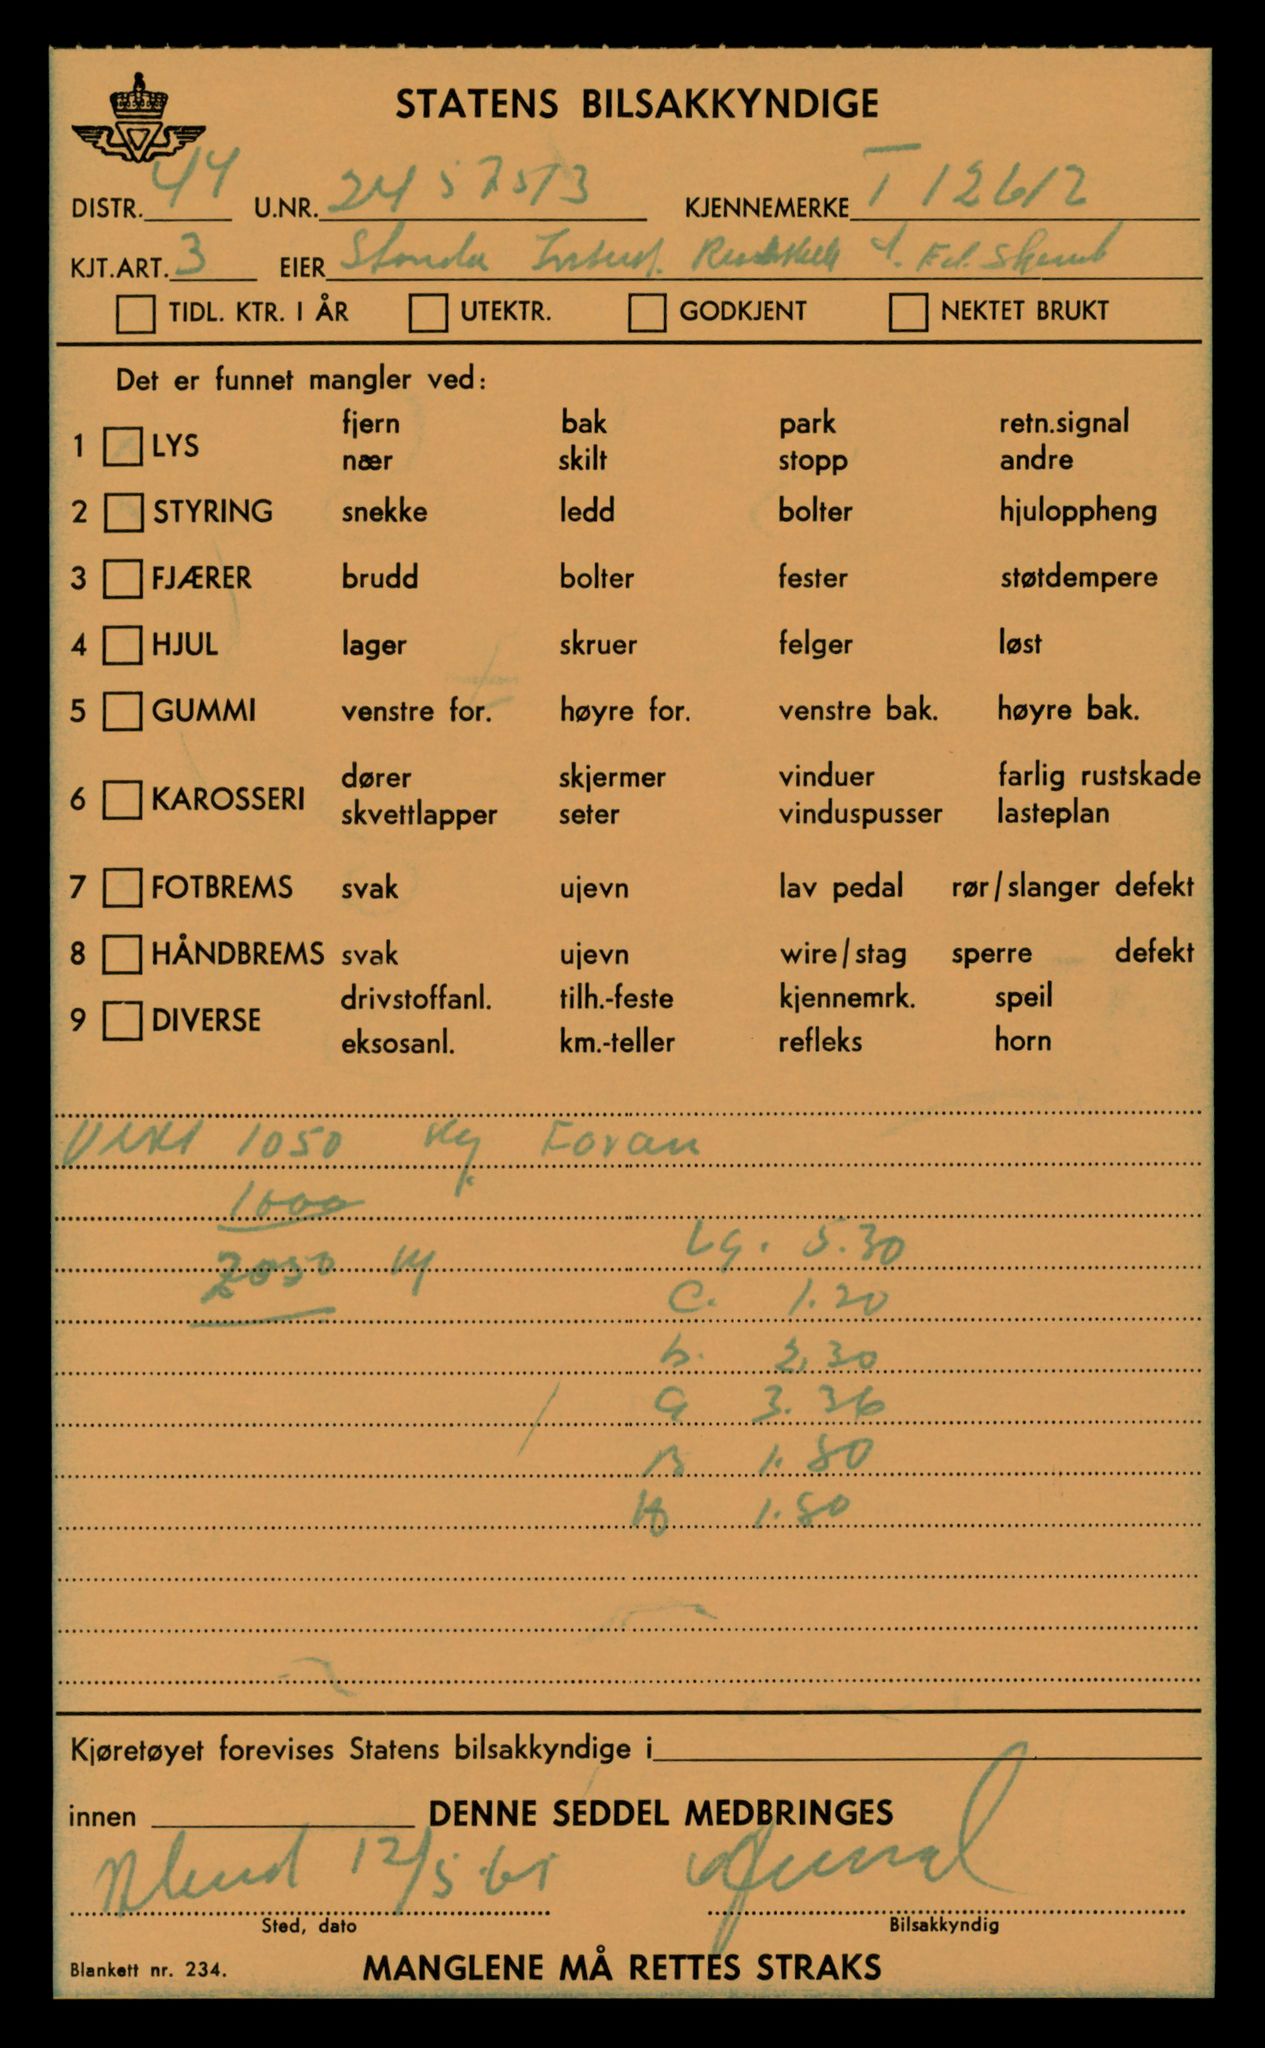 STATENS BILSAKKYNDIGE
DISTR. 44 U.NR. 2457513 KJENNEMERKE T 12612
KJT.ART. 3 EIER
TIDL. KTR. I ÅR UTEKTR. GODKJENT NEKTET BRUKT
Det er funnet mangler ved:
fjern bak park retn.signal
1 LYS
nær skilt stopp andre
2 STYRING snekke ledd bolter hjuloppheng
3 FJÆRER brudd bolter fester støtdempere
4 HJUL lager skruer felger løst
5 GUMMI venstre for. høyre for. venstre bak. høyre bak.
dører skjermer vinduer farlig rustskade
6 KAROSSERI
skvettlapper seter vinduspusser lasteplan
7 FOTBREMS svak ujevn lav pedal rør/slanger defekt
8 HÅNDBREMS svak ujevn wire/stag sperre defekt
drivstoffanl. tilh.-feste kjennemrk. speil
9 DIVERSE
eksosanl. km.-teller refleks horn
Vekt 1050 kg Foran
1000
Lg. 5.30
2050 kg
C. 1.20
b. 2.30
a 3.36
B 1.80
H 1.80
Kjøretøyet forevises Statens bilsakkyndige i
innen DENNE SEDDEL MEDBRINGES
12/5.65
Sted, dato Bilsakkyndig
Blankett nr. 234. MANGLENE MÅ RETTES STRAKS